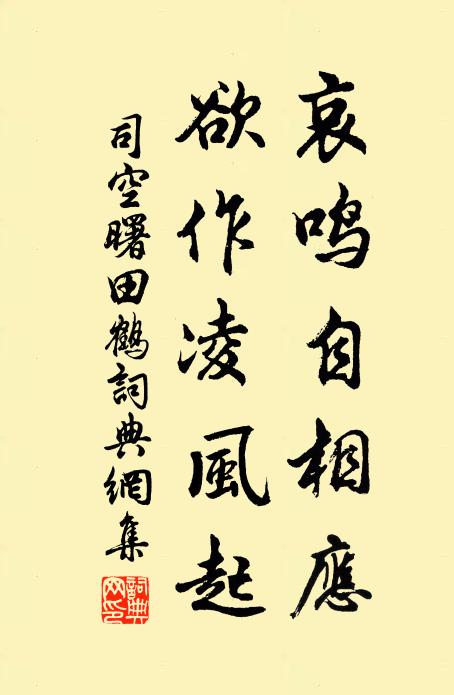 哀鳴自相應
欲作凌風起
司空曙田鶴詞典網集
詞典網印